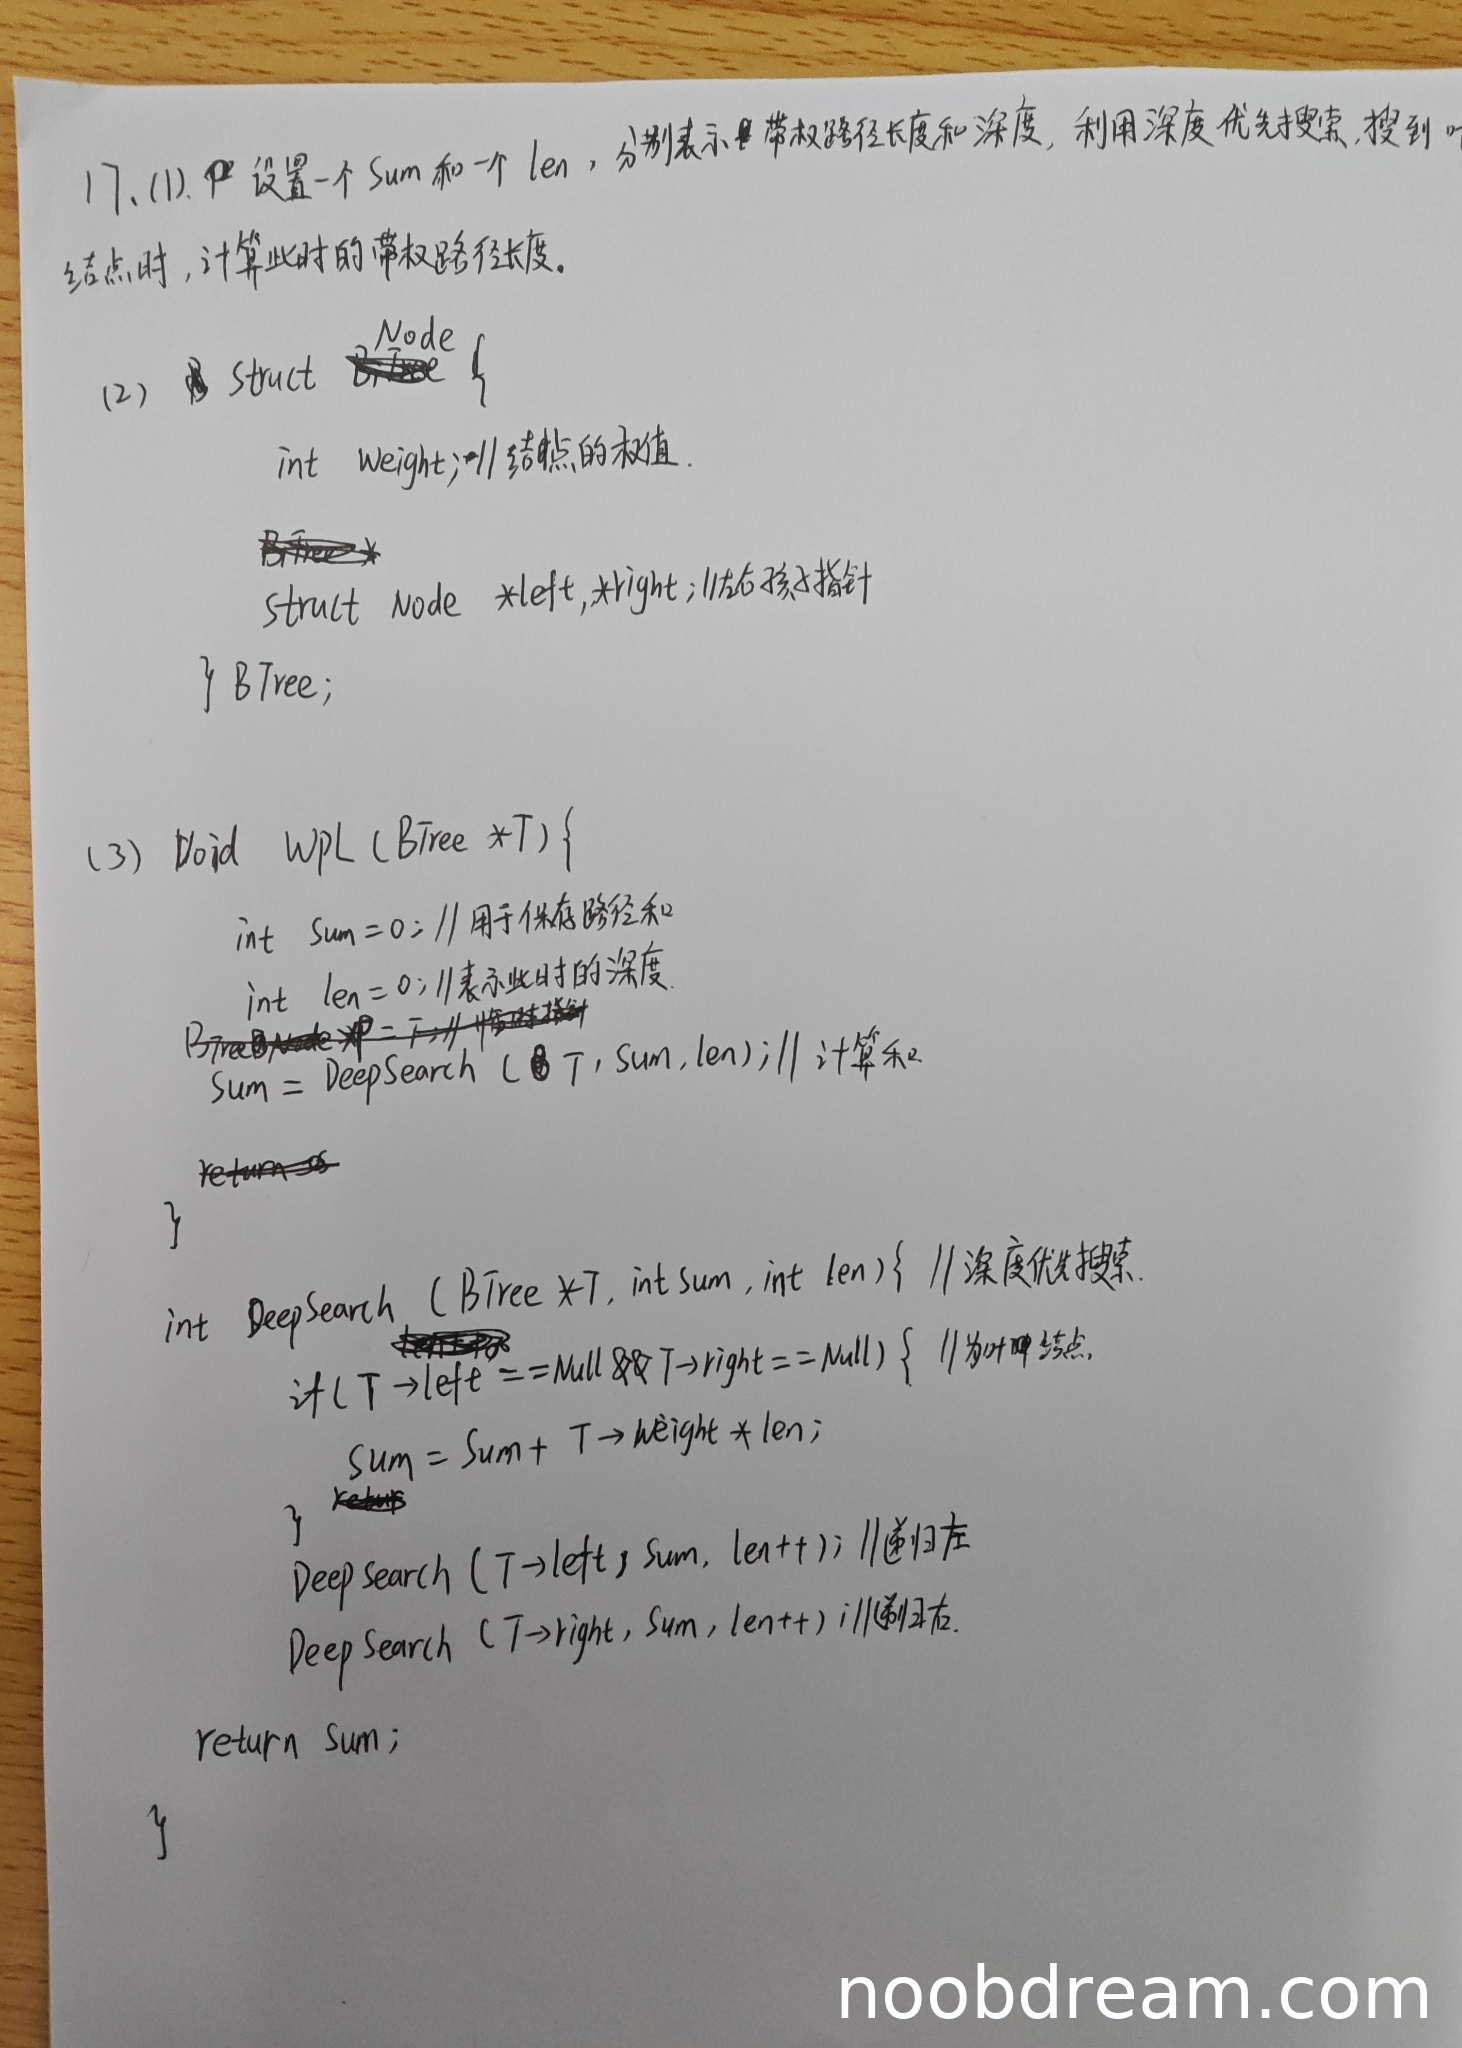 17、(1). 设置一个 Sum 和一个 len，分别表示带权路径长度和深度，利用深度优先搜索，搜到
结点时，计算此时的带权路径长度。
(2) struct Node {
int weight; // 结点的权值.
BiTree *
struct Node *left, *right; // 左右孩子指针
} BTree;
(3) Void WPL (BTree *T) {
int sum = 0; // 用于保存路径和
int len = 0; // 表示此时的深度.
BTree Node *P = T; // 临时指针
Sum = DeepSearch ( T, sum, len); // 计算和
return
}
int DeepSearch (BTree *T, int sum, int len) { // 深度优先搜索.
if ( T→left == Null && T→right == Null) { // 为叶结点.
Sum = Sum + T→weight * len;
} return
Deep Search (T→left, sum, len++); // 递归左
Deep Search (T→right, sum, len++); // 递归右.
return sum;
}
noobdream.com